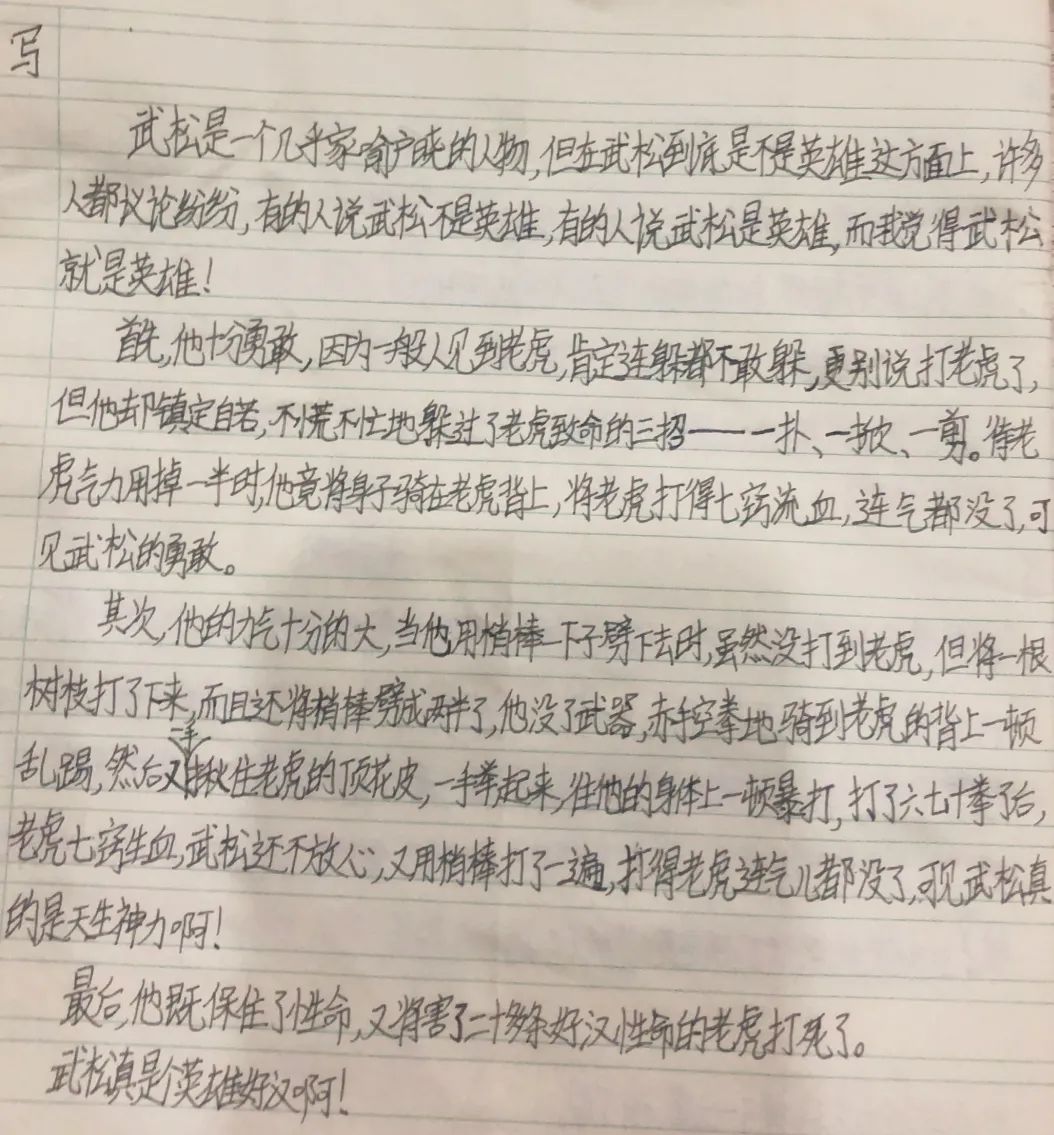 写
武松是一个几乎家喻户晓的人物,但在武松到底是不是英雄这方面上,许多
人都议论纷纷,有的人说武松不是英雄,有的人说武松是英雄,而我觉得武松
就是英雄!
首先,他十分勇敢,因为一般人见到老虎,肯定连躲都不敢躲,更别说打老虎了,
但他却镇定自若,不慌不忙地躲过了老虎致命的三招——一扑、一掀、一剪。待老
虎气力用掉一半时,他竟将身子骑在老虎背上,将老虎打得七窍流血,连气都没了,可
见武松的勇敢。
其次,他的力气十分的大,当他用梢棒一下子劈下去时,虽然没打到老虎,但将一根
树枝打了下来,而且还将梢棒劈成两半了,他没了武器,赤手空拳地骑到老虎的背上一顿
乱踢,然后又一手揪住老虎的顶花皮,一手举起来,往他的身体上一顿暴打,打了六七十拳了后,
老虎七窍生血,武松还不放心,又用梢棒打了一遍,打得老虎连气儿都没了,可见武松真
的是天生神力啊!
最后,他既保住了性命,又将害了二十多条好汉性命的老虎打死了。
武松真是个英雄好汉啊!